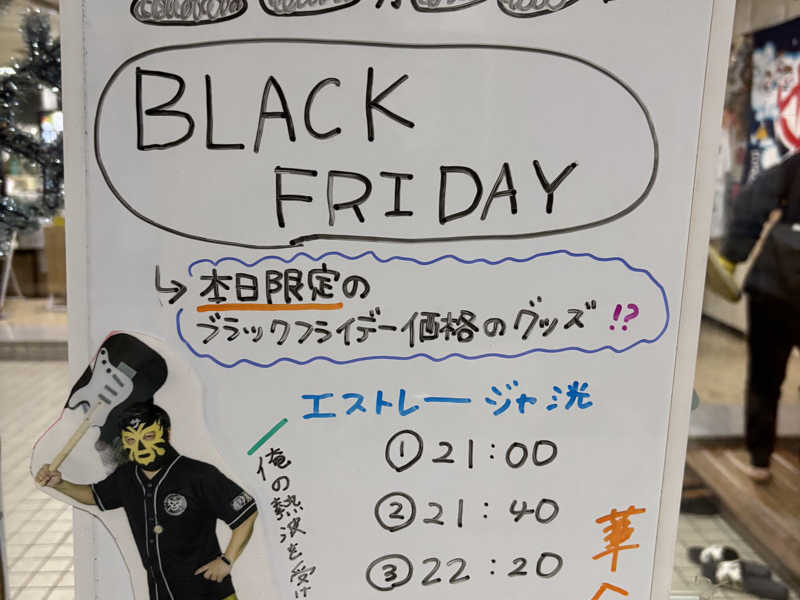 BLACK
FRIDAY
本日限定の
ブラックフライデー価格のグッズ!?
エストレージャ洸
①21:00
②21:40
③22:20
俺の熱波を受け
華